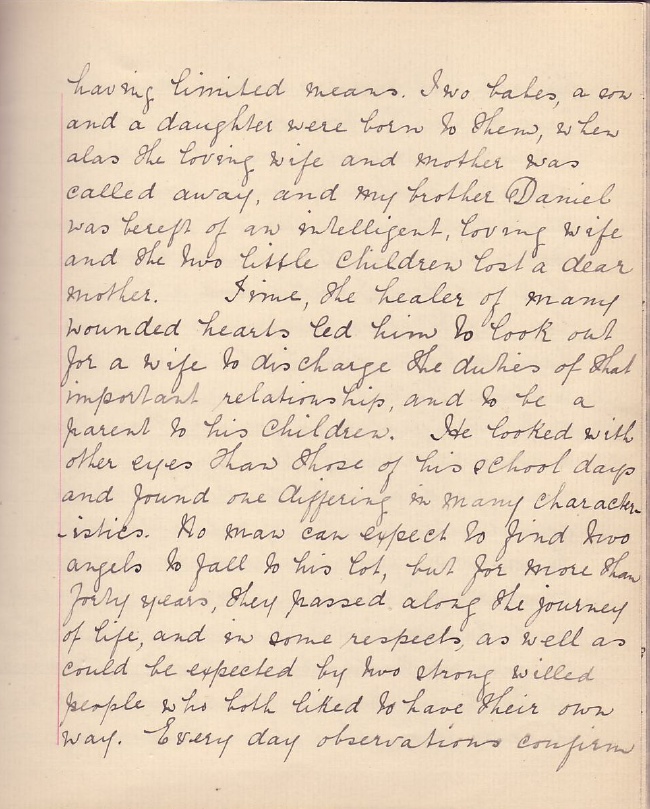 having limited means. Two babes, a son
and a daughter were born to them, when
alas the loving wife and mother was
called away, and my brother Daniel
was bereft of an intelligent, loving wife
and the two little children lost a dear
mother. Time, the healer of many
wounded hearts led him to look out
for a wife to discharge the duties of that
important relationship, and to be a
parent to his children. He looked with
other eyes than those of his school days
and found one differing in many character-
-istics. No man can expect to find two
angels to fall to his lot, but for more than
forty years, they passed along the journey
of life, and in some respects, as well as
could be expected by two strong willed
people who both liked to have their own
way. Every day observations confirm